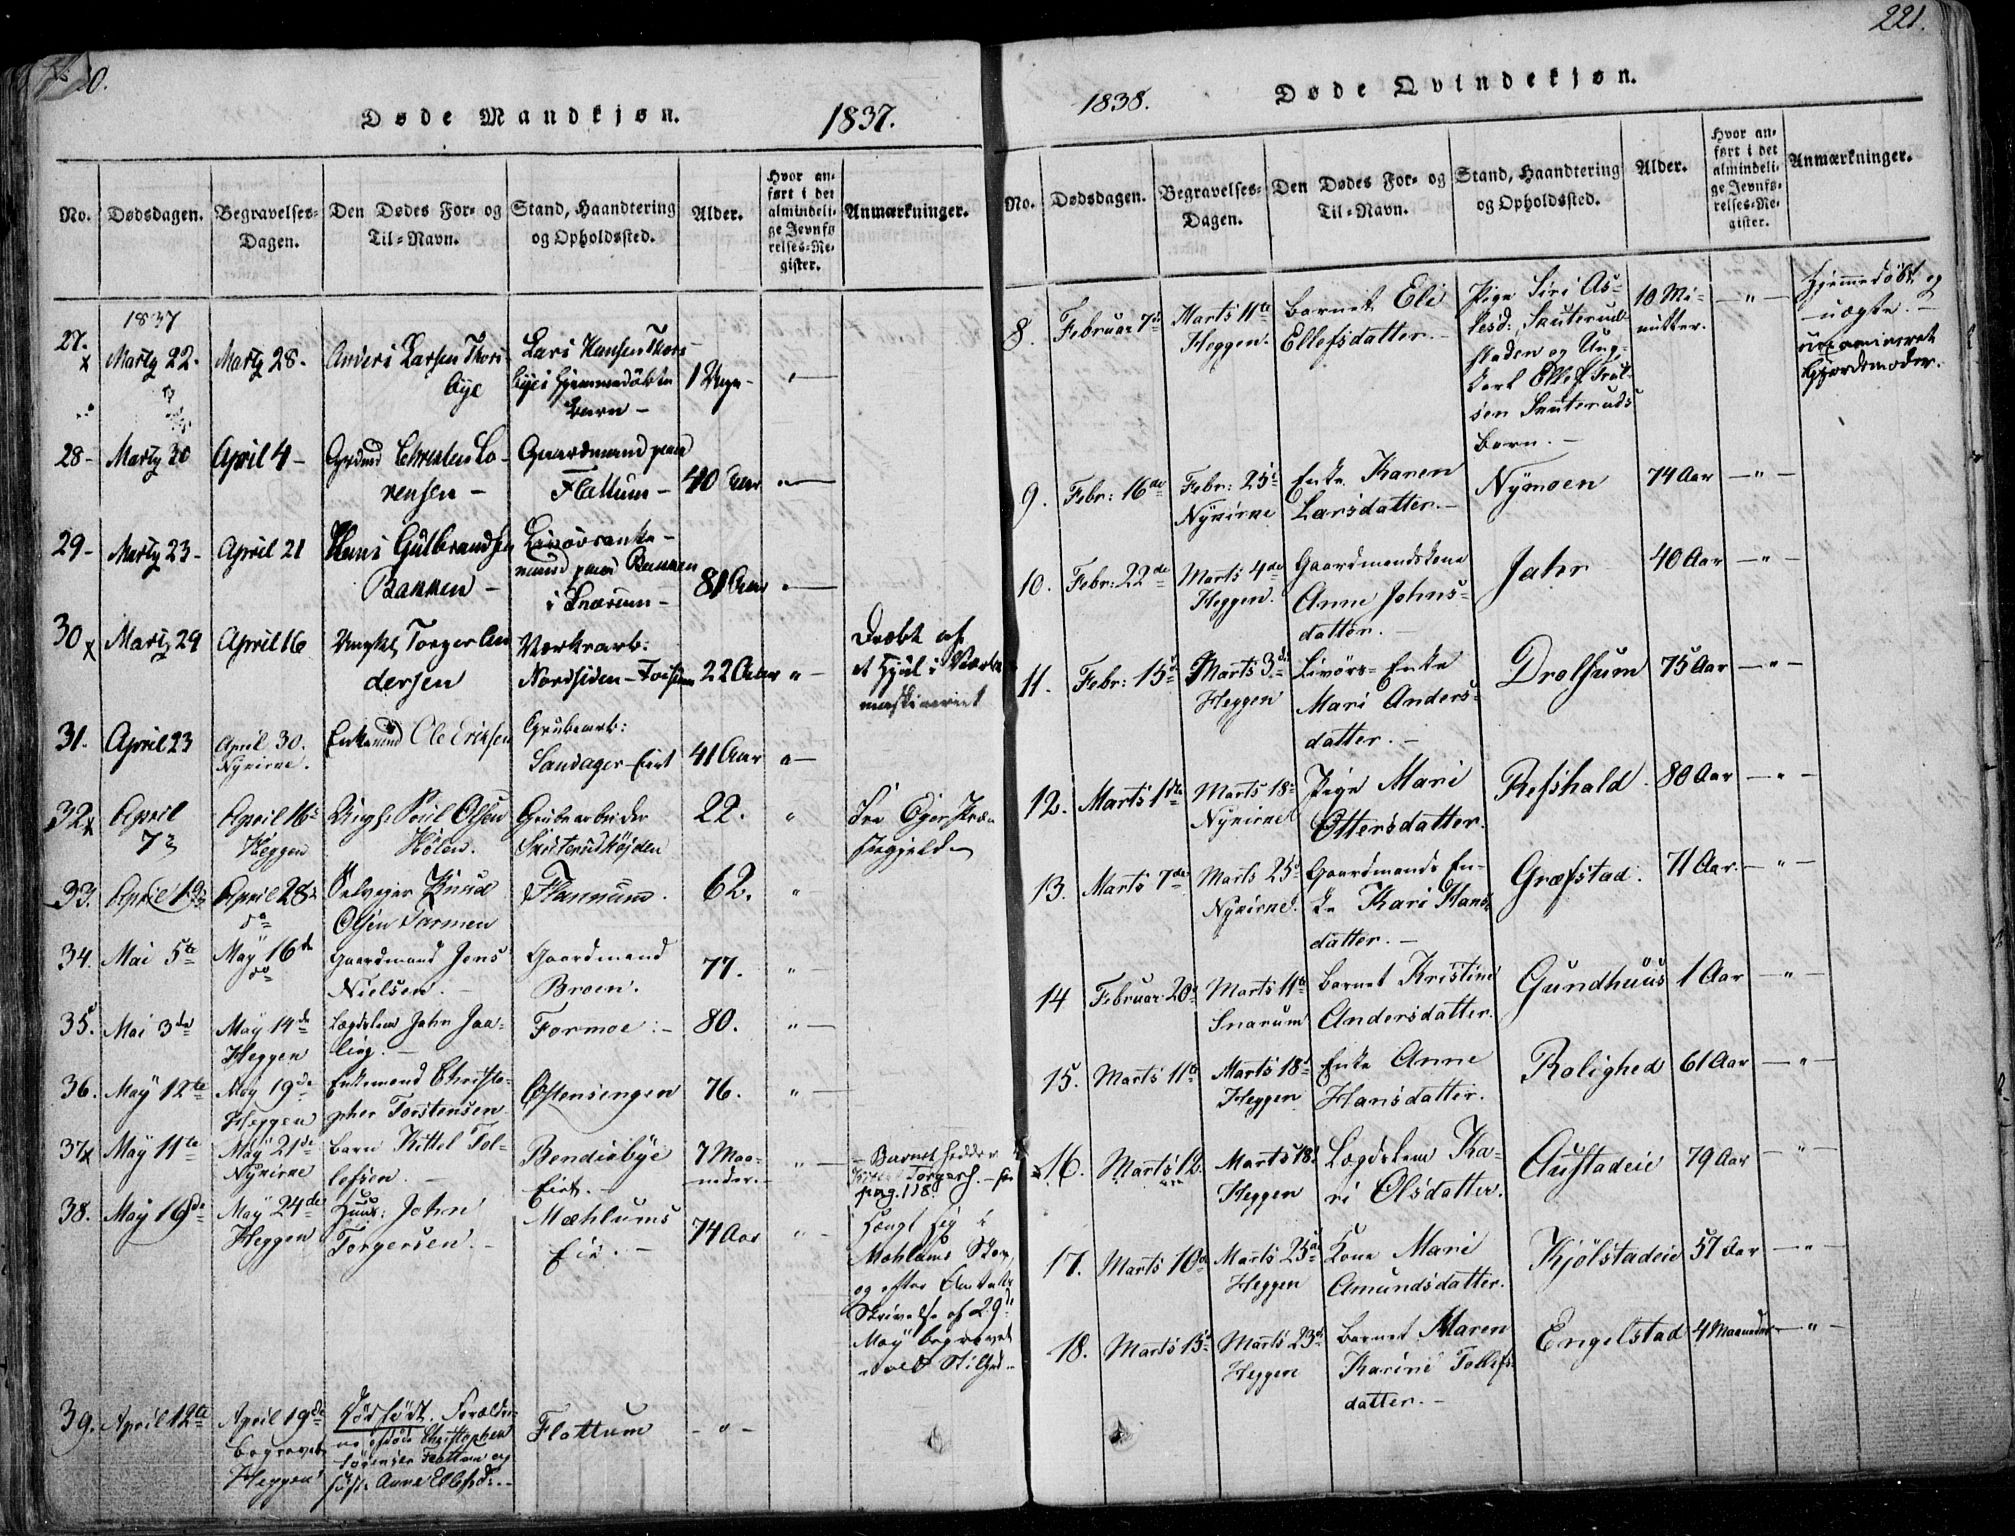 0.
Døde Mandkjøn.
1837.
No.
Dødsdagen.
Begravelses-
Dagen.
Den Dødes For- og
Til-Navn.
Stand, Haandtering
og Opholdssted.
Alder.
Hvor an-
ført i det
almindeli-
ge Jevnfø-
relses-Re-
gister.
Anmærkninger.
1837
27.
x
Martz 22.
Martz 28.
Anders Larsen Thors
bye
Lars Hansen Thors
byes hjemmedøbte
Barn –
1 Uge –
28 –
Martz 30
April 4 –
Christen Lo-
rensen –
Gaardmand paa
Flattum –
40 Aar
29 –
Martz 23 –
April 21
Hans Gulbrandsen
Bakken –
mand paa Bakken
i Snarum –
81 Aar
30 x
Martz 29
April 16
Ungkl. Torger An
dersen
Værksarb:
Nordsiden – Fossum
22 Aar
"
Dræbt af
et Hjul i Værks
maskineriet
31.
April 23
April 30.
Nykirne.
Enkemand Ole Eriksen
Grubearb:
Sandager Eiet
41 Aar
32 x
April
7
April 16
Heggen
Poul Olsen
Hølen.
Grubearbeider
Skuterudhøjden
22.
"
Fra Eger Præ-
stegjeld –
33.
April 19
April 28
do
Selveger Knud
Olsen Formen
Flannum.
62.
"
34.
Mai 5te
May 16de
do
Gaardmand Jens
Nielsen. –
Gaardmand
Broen.
77.
"
35.
Mai 3de
May 14de
Heggen
Lægdslem John Joa-
ling. –
Formoe :–
80.
"
36.
May 12te
May 19de
Heggen
Enkemand Christo-
pher Torstensen
Østensengen
76.
"
37 x
May 11te
May 21de
Nykirne
Barn Kittel Tol-
lefsen. –
Bendiebye
Eiet. –
7 Maa-
neder. –
"
– Barnet hedder
Torgersf. –
pag. 118.
38.
May 16de
May 24de
Heggen
Huus: John
Torgersen. –
Mæhlums
Eie. –
74 Aar
"
Hængt sig i
Mæhlums Skov
og efter Amtets
Skrivelse af 29de
May begravet
39.
April 12te
April 19de
begravet
Heggen
Dødfødt. Foreldre-
ne Christophen
Sørensen Flattum og
Anne Ellefsd: –
Flattum
– " –
221.
1838.
Døde Qvindekjøn.
No.
Dødsdagen.
Begravelses-
Dagen.
Den Dødes For- og
Til-Navn.
Stand, Haandtering
og Opholdssted.
Alder.
Hvor an-
ført i det
almindeli-
ge Jevnfø-
relses-Re-
gister.
Anmærkninger.
8.
Februar 7de
Marts 11te
Heggen.
Barnet Eli
Ellefsdatter. –
Pige Siri As-
lesd: Skuterud-
staden og Ung-
karl Ellef Trul-
sen Skuteruds
Barn. –
10 Mi-
nutter.
– " –
Hjemmedøbt og
– uægte. –
uexamineret
Gjordemoder.
9.
Febr: 16de
Febr: 25de
Nykirne
Enke Karen
Larsdatter. –
Nymoen
74 Aar
– " –
10.
Febr: 22de
Marts 4de
Heggen.
Gaardmandskone
Anne Johns-
datter. –
Jahr
40 Aar
– " –
11.
Febr: 15de
Marts 3de
Heggen
Livörs-Enke
Mari Anders-
datter. –
Drolsum
75 Aar
– " –
12.
Marts 1ste
Marts 18de
Nykirne
Pige Mari
Ottersdatter.
Refshald.
80 Aar
– " –
13.
Marts 7de
Marts 25de
Nykirne.
Gaardmands En-
ke Kari Hans-
datter. –
Græfstad.
71 Aar.
– " –
14
Februar 20de
Marts 11te
Snarum
Barnet Kristine
Andersdatter.
Gundhuus
1 Aar
– " –
15.
Marts 11te
Marts 18de
Heggen
Enke Anne
Hansdatter.
Rolighed
61 Aar
– " –
x 16.
Marts 12te
Marts 18de
Heggen
Lægdslem Ka-
ri Olsdatter.
Austadeie
79 Aar
– " –
17.
Marts 10de
Marts 25de
Heggen
Kone Mari
Amundsdatter.
Kjölstadeie
57 Aar
– " –
18.
Marts 15de
Marts 23de
Heggen
Barnet Maren
Karine Tollefs-
datter. –
Engelstad
4 Maaneder
– " –